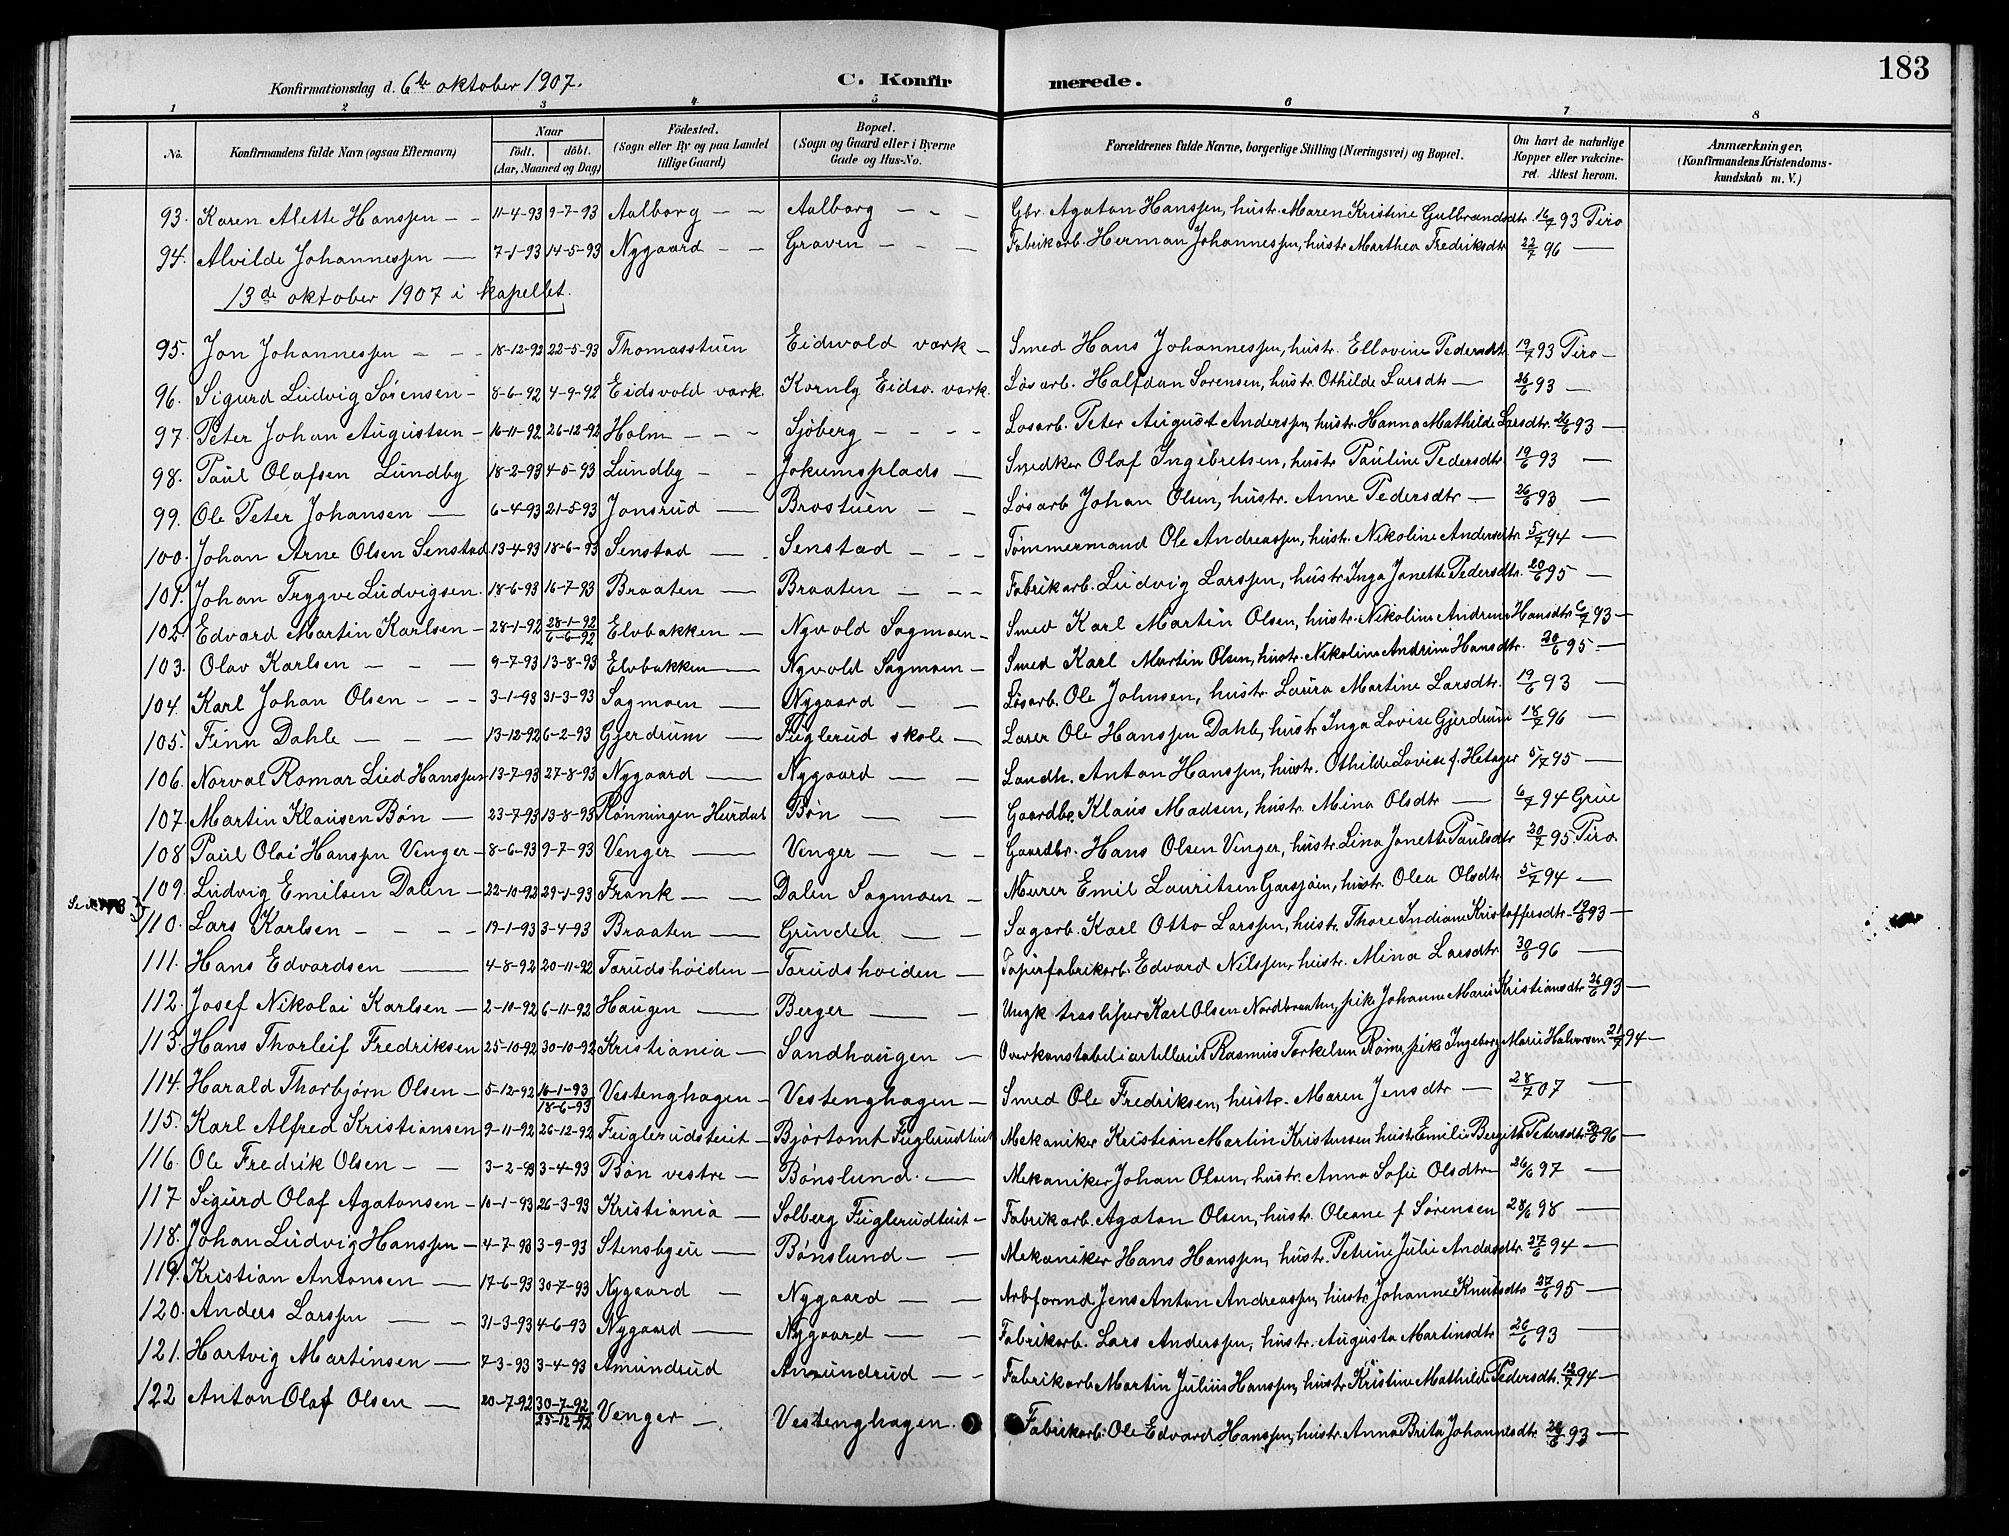 183
Konfirmationsdag d. 6te oktober 1907.
C. Konfirmerede.
1 2 3 4 5 6 7 8
No. | Konfirmandens fulde Navn (ogsaa Efternavn) | Naar födt. döbt. (Aar, Maaned og Dag) | Födested. (Sogn eller By og paa Landet tillige Gaard) | Bopæl. (Sogn og Gaard eller i Byerne Gade og Hus-No. | Forældrenes fulde Navne, borgerlige Stilling (Næringsvei) og Bopæl. | Om havt de naturlige Kopper eller vakcineret. Attest herom. | Anmærkninger, (Konfirmandens Kristendomskundskab m. V.)
93. Karen Alette Hanssen - - 11-4-93 9-7-93 Aalborg - - Aalborg - - - Gbr. Agaton Hanssen, hustr. Maren Kristine Gulbrandsdtr. 16/7 93 Tiro
94. Alvilde Johannessen — 7-1-93 14-5-93 Nygaard - - Graven - - - Fabrikarb. Herman Johannessen, hustr. Marthea Fredriksdtr 22/7 96 —
13de oktober 1907 i kapellet.
95. Jon Johannessen - - - 18-12-92 22-5-93 Thomasstuen Eidsvold værk - Smed Hans Johannessen, hustr. Ellovine Pedersdtr 19/7 93 Tiro -
96. Sigurd Ludvig Sørensen - 8-6-92 4-9-92 Eidsvold værk. Kornly Eidsv. værk. Løsarb. Halfdan Sørensen, hustr. Othilde Larsdtr — 26/6 93 —
97. Peter Johan Augustsen - 16-11-92 26-12-92 Holm - - - Sjöberg - - - - Løsarb. Peter August Anderssen, hustr. Hanna Mathilde Larsdtr. 26/6 93 —
98. Paul Olafsen Lundby 18-2-93 4-5-93 Lundby - - Jokumsplads — Smedker Olaf Ingebretsen, hustr Pauline Pedersdtr 19/6 93 —
99. Ole Peter Johansen — 6-4-93 21-5-93 Jonsrud — Brostuen - - Løsarb Johan Olsen, hustr. Anne Pedersdtr — 26/6 93 —
100. Johan Arne Olsen Senstad 13-4-93 18-6-93 Senstad — - Senstad - - - Tømmermand Ole Andreassen, hustr. Nikoline Andersdtr 5/7 94 —
101. Johan Trygve Ludvigsen. 18-6-93 16-7-93 Braaten — Braaten - - - Fabrikarb. Ludvig Larssen, hustr Inga Jonette Pedersdtr. 20/6 95 —
102. Edvard Martin Karlsen - 28-1-92 28-1-92 6-6-92 Elvbakken - Nyvold Sagmoen - Smed Karl Martin Olsen, hustr. Nikoline Andrine Hansdtr 6/7 93 —
103. Olav Karlsen - - — 9-7-93 13-8-93 Elvbakken — Nyvold Sagmoen - Smed Karl Martin Olsen, hustr. Nikoline Andrine Hansdtr. 20/6 95 —
104. Karl Johan Olsen - - - 3-1-93 31-3-93 Sagmoen — Nygaard - - Løsarb. Ole Johnsen, hustr. Laura Martine Larsdtr. 19/6 93 —
105. Finn Dahle - - — 13-12-92 6-2-93 Gjerdrum — Fuglerud skole - Lærer Ole Hanssen Dahle, hustr Inga Lovise Gjerdrum 18/7 96 —
106. Norval Romar Lied Hanssen 13-7-93 27-8-93 Nygaard — Nygaard — - Landh. Anton Hanssen, hustr. Othilde Lovise f. Hetager 5/7 95 —
107. Martin Klausen Bøn — 23-7-93 13-8-93 Rønningen Hurdal Bøn — - Gaardbr. Klaus Madsen, hustr. Mina Olsdtr — 6/7 94 Grue
108 Paul Olai Hanssen Venger - 8-6-93 9-7-93 Venger — Venger - - - Gaardbr. Hans Olsen Venger, hustr. Lina Jonette Paulsdtr 20/7 95 Tiro.
109. Ludvig Emilsen Dalen - 22-10-92 29-1-93 Frank - - Dalen Sagmoen - Murer Emil Lauritsen Garsjøen, hustr. Olea Olsdtr 5/7 94 —
110. Lars Karlsen - - - - 19-1-93 3-4-93 Braaten — Grinden — - Sagarb. Karl Otto Larssen, hustr. Thore Indiane Kristoffersdtr. 19/6 93 —
111. Hans Edvardsen — 4-8-92 20-11-92 Tarudshöiden - Tarudshoiden - Papirfabrikarb. Edvard Nilssen, hustr. Mina Larsdtr 30/6 96 —
112. Josef Nikolai Karlsen - 2-10-92 6-11-92 Haugen — Berger — - Ungk Karl Olsen Nordbraaten, pike Johanne Marie Kristiansdtr 26/6 93 —
113. Hans Thorleif Fredriksen 25-10-92 30-10-92 Kristiania - Sandhaugen - Overkonstabel i artilleriet Rasmus Torkelsen, pike Ingeborg Marie Halvorsen 21/7 94 —
114. Harald Thorbjørn Olsen - 5-12-92 16-1-93 18-6-93 Vestenghagen - Vestenghagen - Smed Ole Fredriksen, hustr. Maren Jensdtr — 28/7 07 —
115. Karl Alfred Kristiansen 9-11-92 26-12-92 Fuglerudsteiet - Bjørtomt Fuglerudteiet Mekaniker Kristian Martin Kristensen hustr Emilie Bergitte Petersdtr 30/6 96 —
116. Ole Fredrik Olsen - - 3-2-93 3-4-93 Bøn vestre - Bønslund. — Mekaniker Johan Olsen, hustr. Anna Sofie Olsdtr - 26/6 97 —
117 Sigurd Olaf Agatonsen - 10-1-93 26-3-93 Kristiania - Solberg Fuglerudteiet - Fabrikarb. Agaton Olsen, hustr. Oleane f Sørensen 28/6 98 —
118. Johan Ludvig Hanssen - 4-7-93 3-9-93 Stensbyeie — Bønslund - - Mekaniker Hans Hanssen, hustr. Petrine Julie Andersdtr 27/6 94 —
119. Kristian Antonsen — 17-6-93 30-7-93 Nygaard - Nygaard - - Arbformd. Jens Anton Andreassen, hustr Johanne Knutsdtr 27/6 95 —
120. Anders Larssen — - 31-3-93 4-6-93 Nygaard — Nygaard — - Fabrikarb. Lars Anderssen, hustr. Augusta Martinsdtr 26/6 93 —
121. Hartvig Martinsen — 7-3-93 3-4-93 Amundrud Amundrud - - Fabrikarb Martin Julius Hanssen, hustr Kristine Mathilde Pedersdtr. 18/7 94 —
122 Anton Olaf Olsen — 20-7-92 30-7-92 25-12-92 Venger - Vestenghagen. Fabrikarb. Ole Edvard Hanssen, hustr. Anna Brita Johannesdtr 26/6 93 —